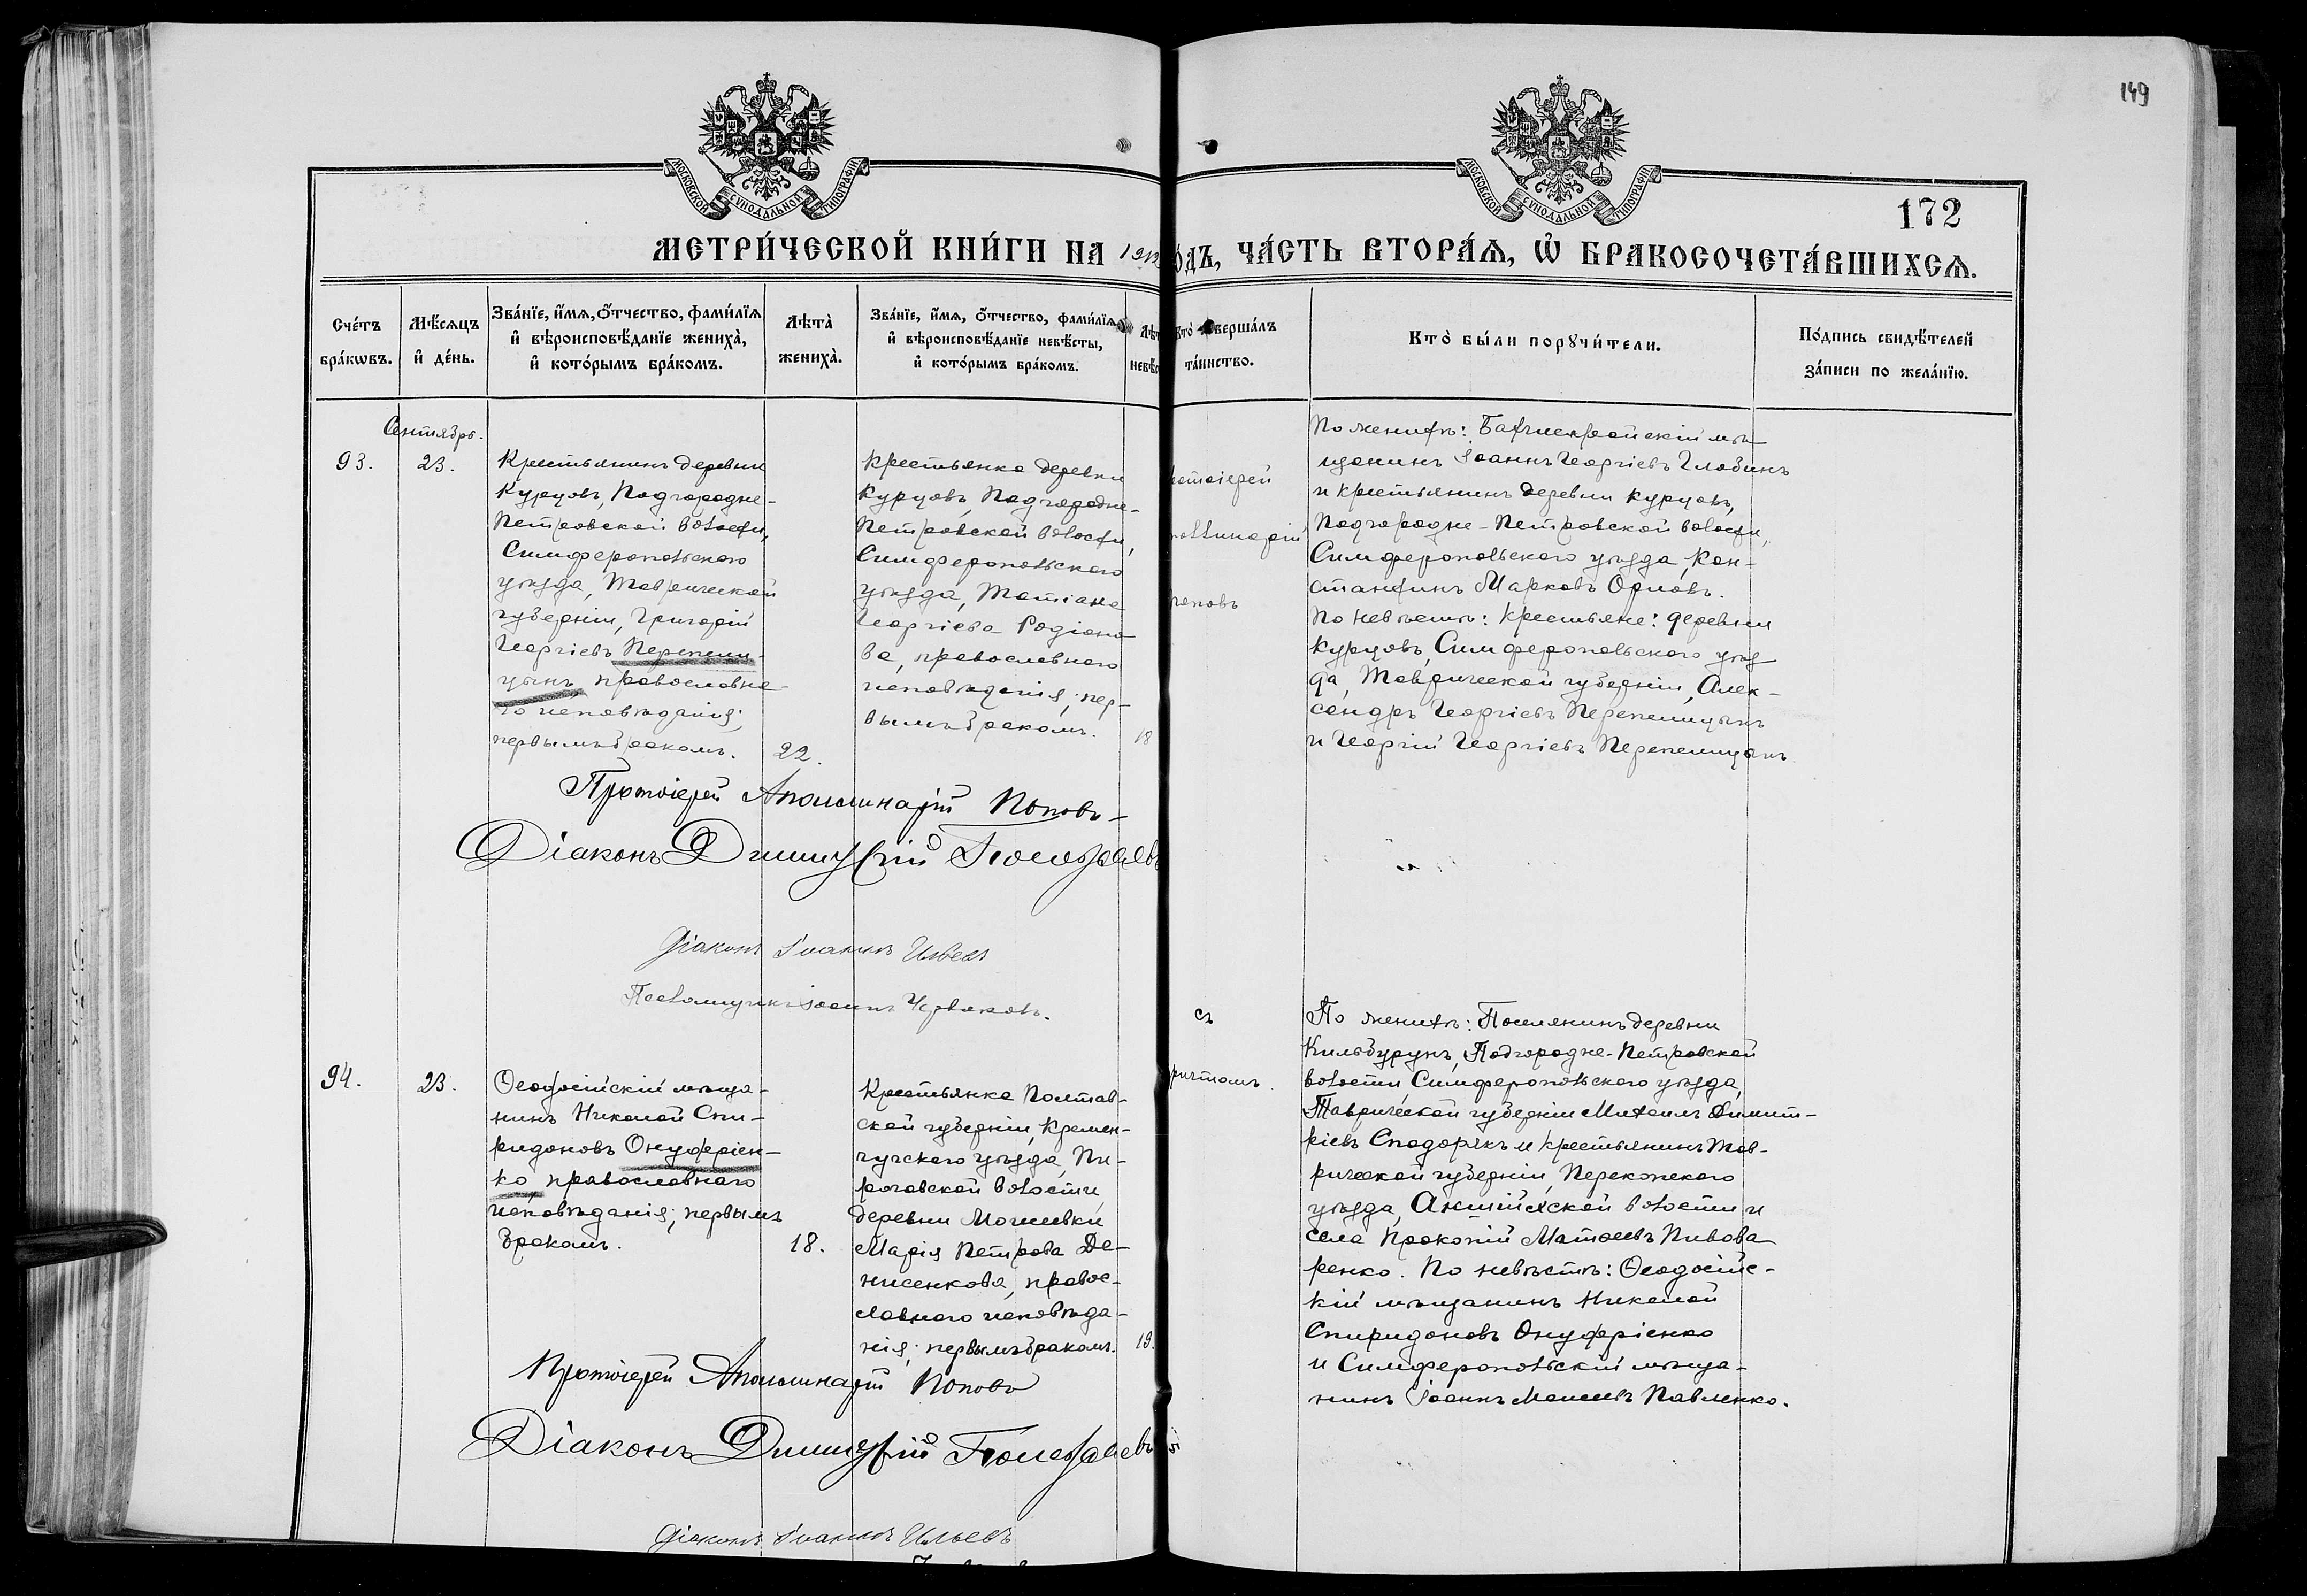 149
МОСКОВСКОЙ СУНОДАЛЬНОЙ ТИПОГРАФІИ
МОСКОВСКОЙ СУНОДАЛЬНОЙ ТИПОГРАФІИ
172
МЕТРИ́ЧЕСКОЙ КНИ́ГИ НА 191 о́дъ, ЧА́СТЬ ВТОРА́Ѧ, Ѿ БРАКОСОЧЕТА́ВШИХСѦ.
Сче́тъ бра́кѡвъ.
Мѣ́сяцъ и҆ де́нь.
Зва́нїе, и҆́мѧ, о҆́тчество, фами́лїѧ
и҆ вѣроисповѣ́данїе жениха̀,
и҆ кото́рымъ бра́комъ.
Лѣта̀ жениха̀.
Зва́нїе, и҆́мѧ, о҆́тчество, фами́лїѧ
и҆ вѣроисповѣ́данїе невѣ́сты,
и҆ кото́рымъ бра́комъ.
Лѣт
невѣс
Кто̀ совершáлъ
та́инство.
Кто̀ бы́ли порꙋчи́тели.
По́дпись свидѣ́телей
за́писи по жела́нїю.
Сентябрь.
93.
23.
Крестьянинъ деревни
Курцовъ, Подгородне-
Петровской волости,
Симферопольского
уѣзда, Таврической
губерніи, Григорій
Георгіевъ Перепели-
цынъ, православна-
го исповѣданія;
первымъ бракомъ.
22.
Крестьянка деревни
Курцовъ, Подгородне-
Петровской волости,
Симферопольского
уѣзда, Татіана
Георгіева Родіоно
ва, православного
исповѣданія; пер-
вымъ бракомъ.
18
ротоіерей
поллинарій
Поповъ
По женихѣ: Бахчисарайскій мѣ
щанинъ Іоаннъ Георгіевъ Глобинъ
и крестьянинъ деревни Курцовъ,
Подгородне-Петровской волости,
Симферопольского уѣзда, Кон-
стантинъ Марковъ Орловъ.
По невѣстѣ: крестьяне: деревни
Курцовъ, Симферопольского уѣз
да, Таврической губерніи, Алек-
сандръ Георгіевъ Перепелицынъ
и Георгій Георгіевъ Перепелицынъ
Протоіерей Аполлинарій Поповъ
Діаконъ Димитрій
Діаконъ Іоаннъ Ильевъ
Псаломщикъ Іоаннъ Червяковъ.
94.
23.
Ѳеодосійскій мѣща-
нинъ Николай Спи-
ридоновъ Онуфріен-
ко, православнаго
исповѣданія; первымъ
бракомъ.
18.
Крестьянка Полтав-
ской губерніи, Кремен-
чугскаго уѣзда, Пи-
роговской волости,
деревни Могилевки
Марія Петрова Де-
нисенкова, правос-
лавнаго исповѣда-
нія; первымъ бракомъ.
19.
съ
ричтомъ.
По женихѣ: Поселянинъ деревни
Кильбурунъ, Подгородне-Петровской
волости Симферопольского уѣзда,
Таврической губерніи Михаилъ Димит-
ріевъ Сподорекъ и крестьянинъ Тав-
рической губерніи, Перекопскаго
уѣзда, волости и
села Прокопій Матѳеевъ Пивова
ренко. По невѣстѣ: Ѳеодосійс-
кій мѣщанинъ Николай
Спиридоновъ Онуфріенко
и Симферопольскій мѣща-
нинъ Іоаннъ Моисеевъ Павленко.
Протоіерей Аполлинарій Поповъ
Діаконъ Димитрій
Діаконъ Іоаннъ Ильевъ